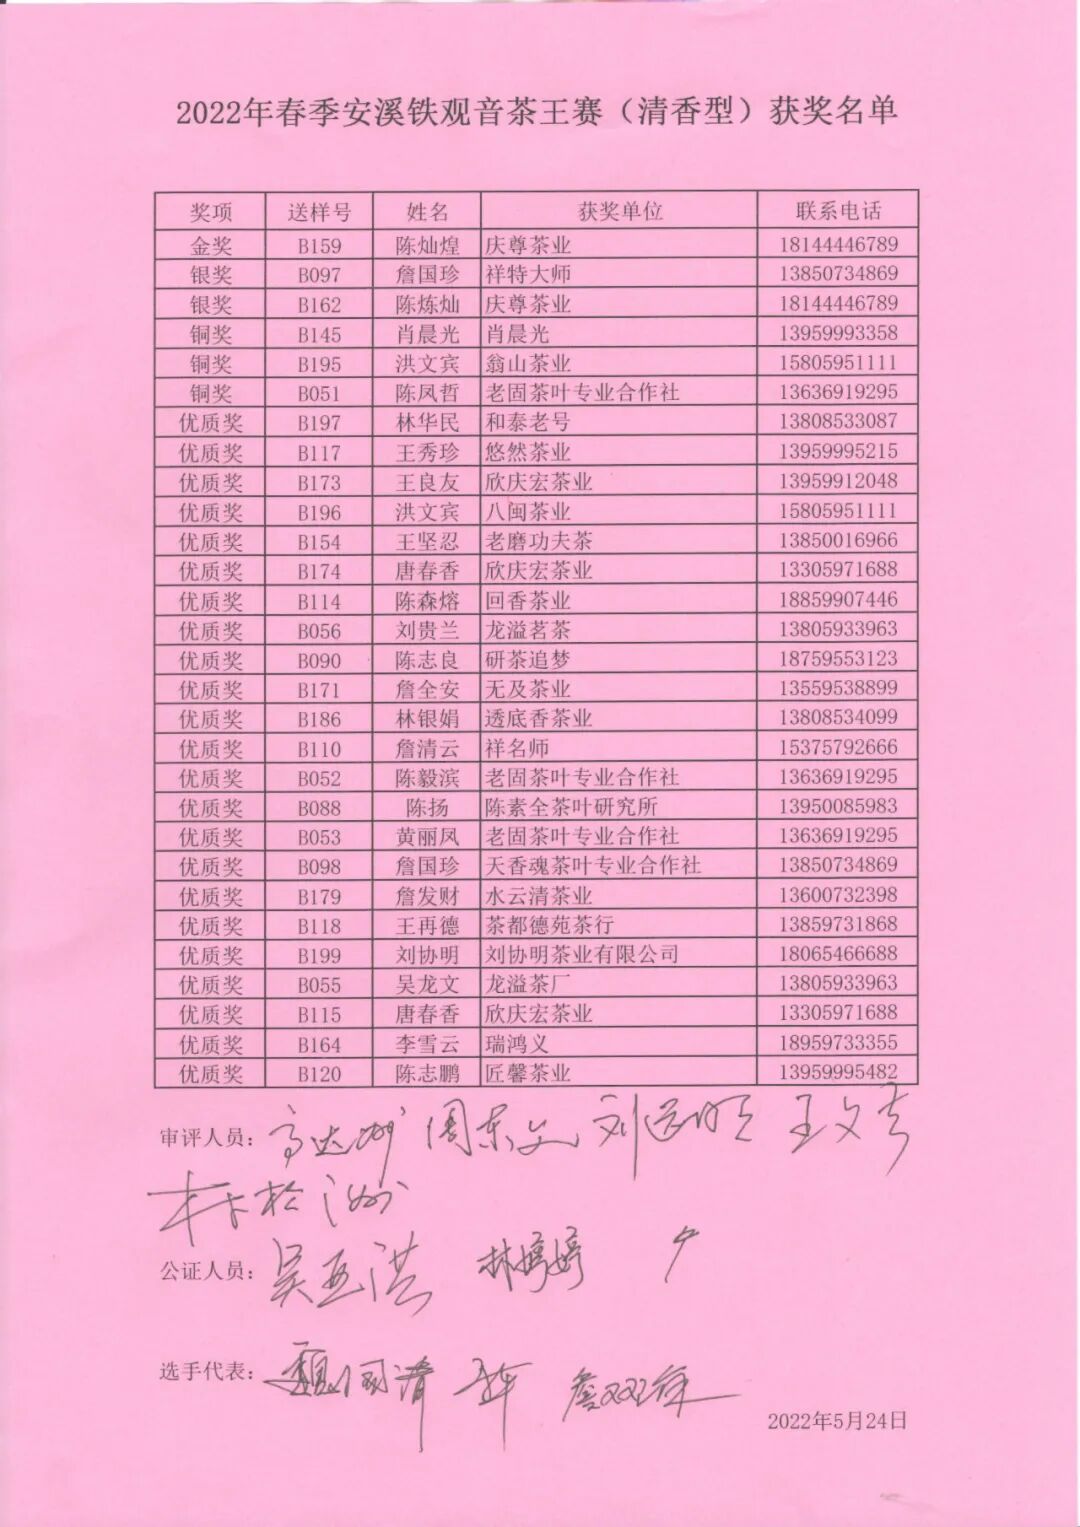 2022年春季安溪铁观音茶王赛（清香型）获奖名单
奖项 送样号 姓名 获奖单位 联系电话
金奖 B159 陈灿煌 庆尊茶业 18144446789
银奖 B097 詹国珍 祥特大师 13850734869
银奖 B162 陈炼灿 庆尊茶业 18144446789
铜奖 B145 肖晨光 肖晨光 13959993358
铜奖 B195 洪文宾 翁山茶业 15805951111
铜奖 B051 陈凤哲 老固茶叶专业合作社 13636919295
优质奖 B197 林华民 和泰老号 13808533087
优质奖 B117 王秀珍 悠然茶业 13959995215
优质奖 B173 王良友 欣庆宏茶业 13959912048
优质奖 B196 洪文宾 八闽茶业 15805951111
优质奖 B154 王坚忍 老磨功夫茶 13850016966
优质奖 B174 唐春香 欣庆宏茶业 13305971688
优质奖 B114 陈森熔 回香茶业 18859907446
优质奖 B056 刘贵兰 龙溢茗茶 13805933963
优质奖 B090 陈志良 研茶追梦 18759553123
优质奖 B171 詹全安 无及茶业 13559538899
优质奖 B186 林银娟 透底香茶业 13808534099
优质奖 B110 詹清云 祥名师 15375792666
优质奖 B052 陈毅滨 老固茶叶专业合作社 13636919295
优质奖 B088 陈扬 陈素全茶叶研究所 13950085983
优质奖 B053 黄丽凤 老固茶叶专业合作社 13636919295
优质奖 B098 詹国珍 天香魂茶叶专业合作社 13850734869
优质奖 B179 詹发财 水云清茶业 13600732398
优质奖 B118 王再德 茶都德苑茶行 13859731868
优质奖 B199 刘协明 刘协明茶业有限公司 18065466688
优质奖 B055 吴龙文 龙溢茶厂 13805933963
优质奖 B115 唐春香 欣庆宏茶业 13305971688
优质奖 B164 李雪云 瑞鸿义 18959733355
优质奖 B120 陈志鹏 匠馨茶业 13959995482
审评人员：
公证人员： 吴亚洪 林婷婷
选手代表： 魏国清
2022年5月24日